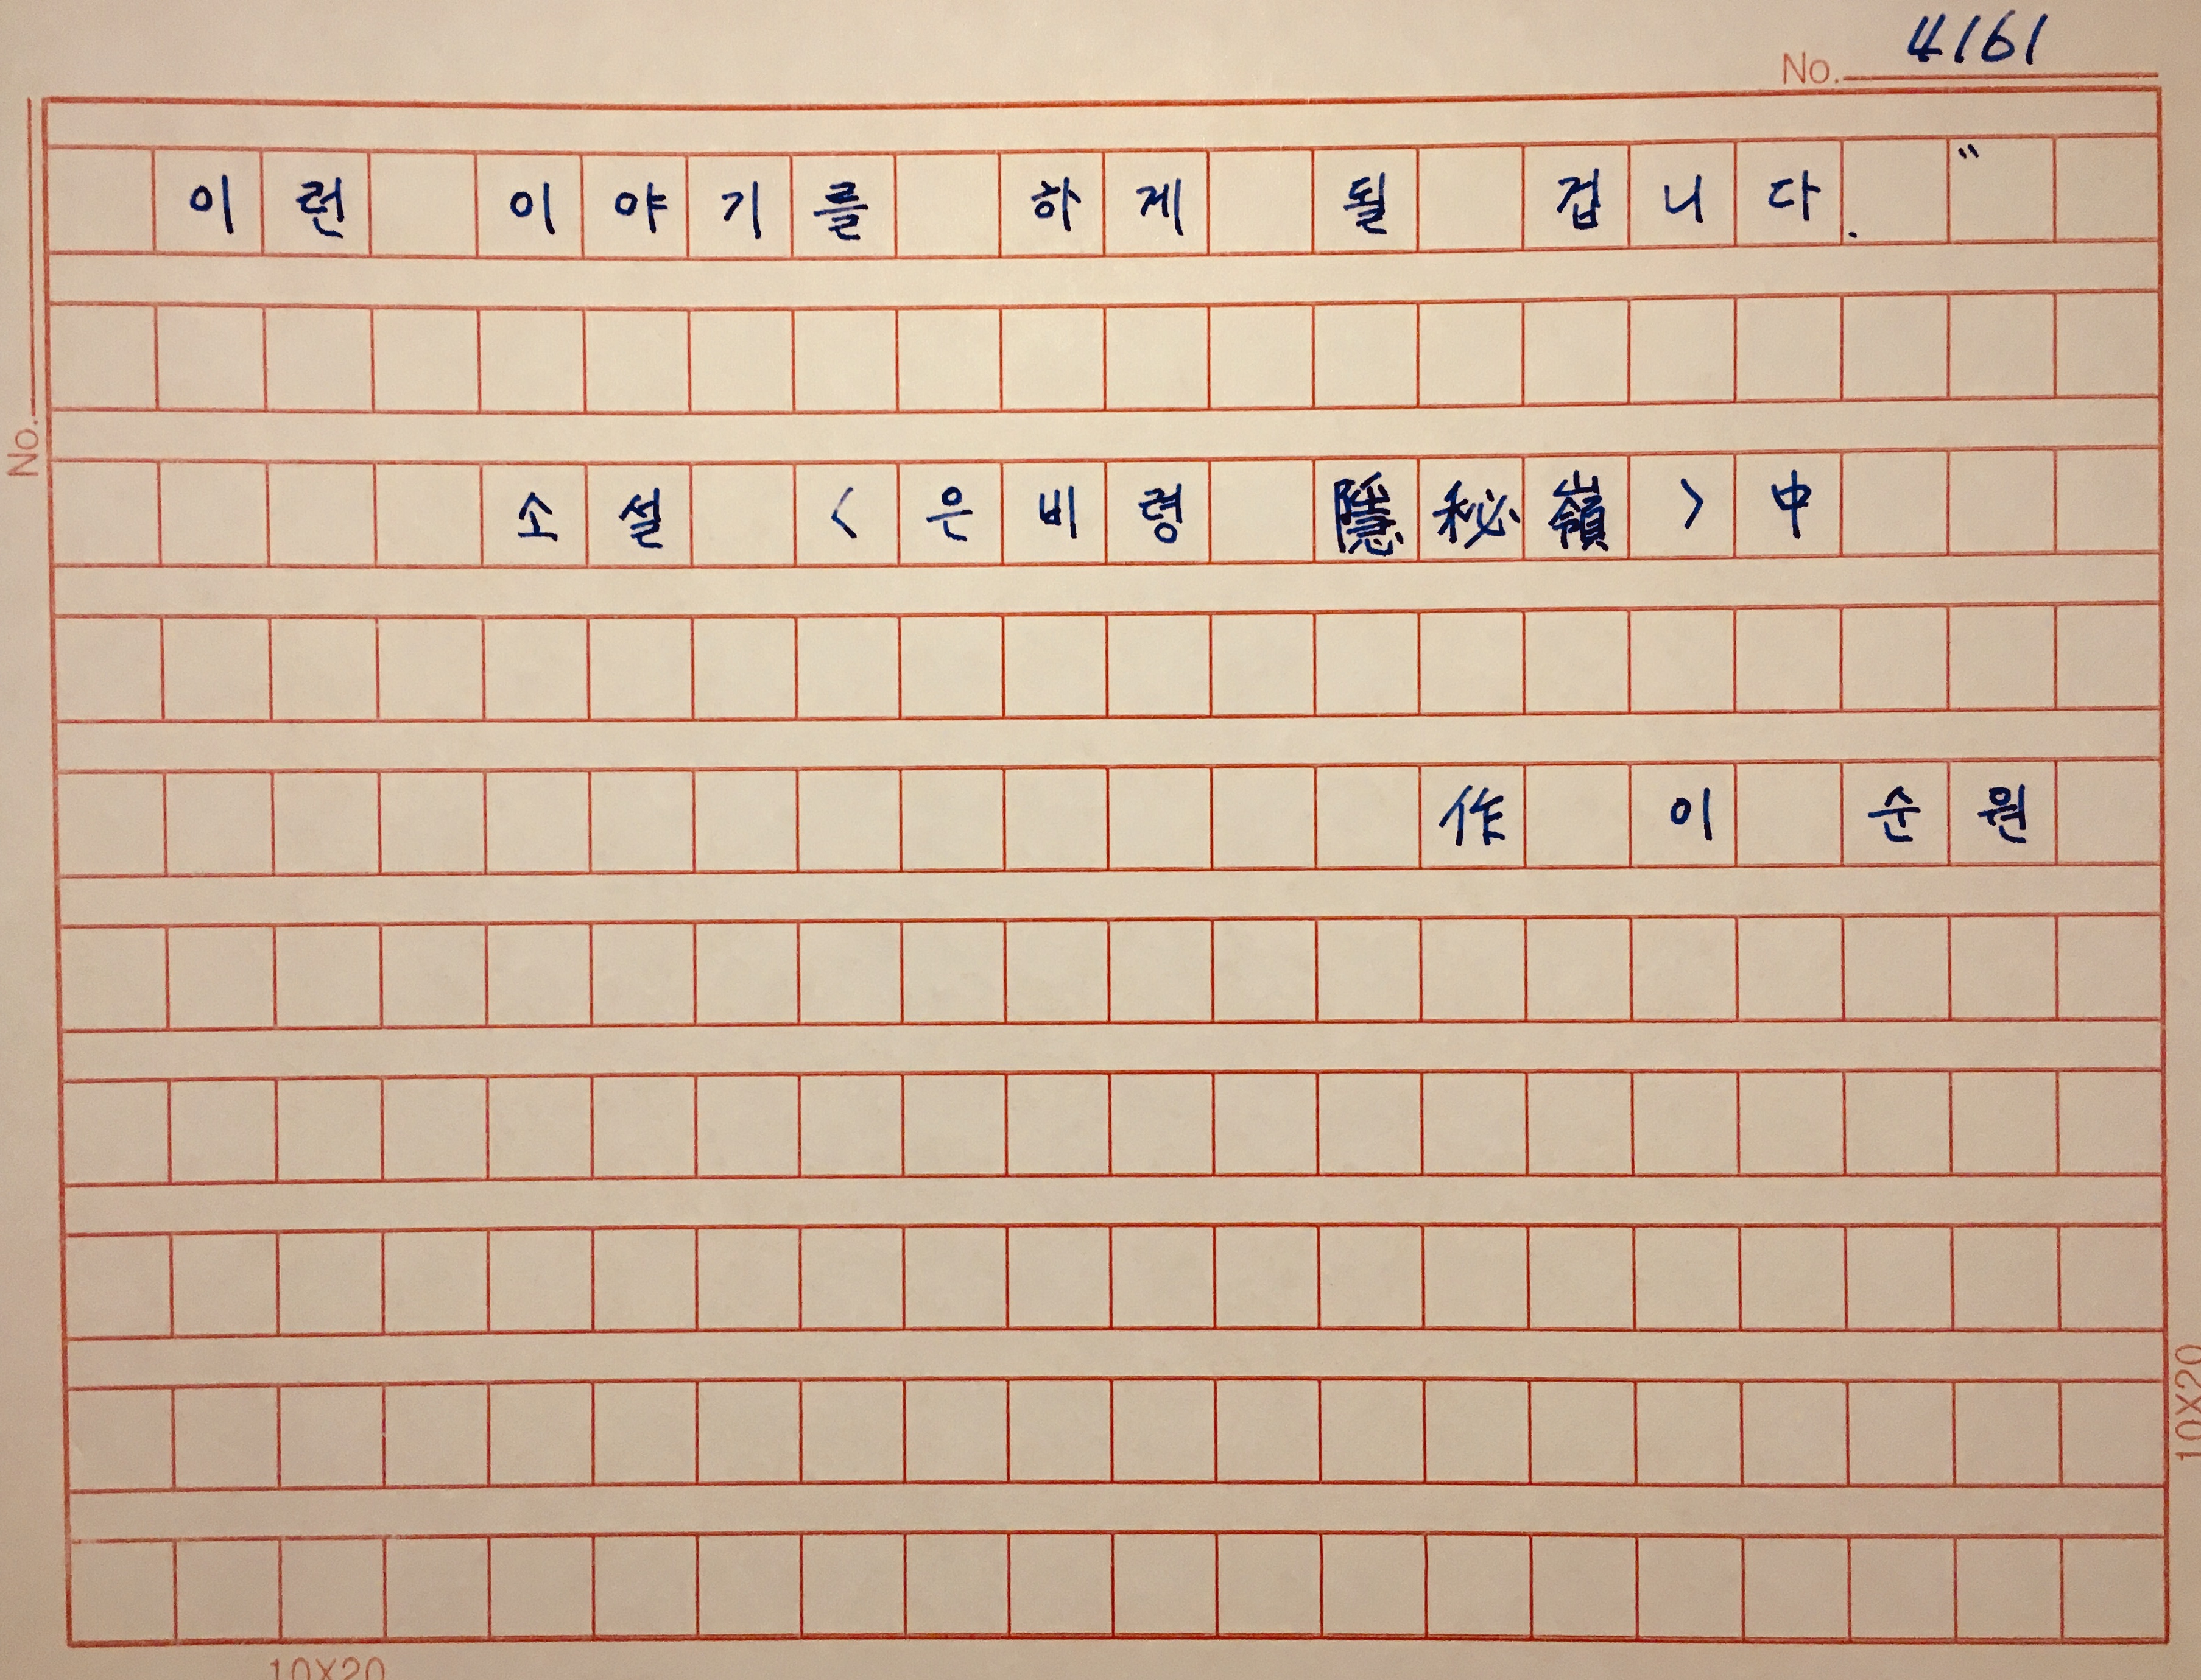 No. 4161
이런 이야기를 하게 될 겁니다."
소설 <은비령 隱秘嶺> 中
作 이 순원
No.
10X20
10X20